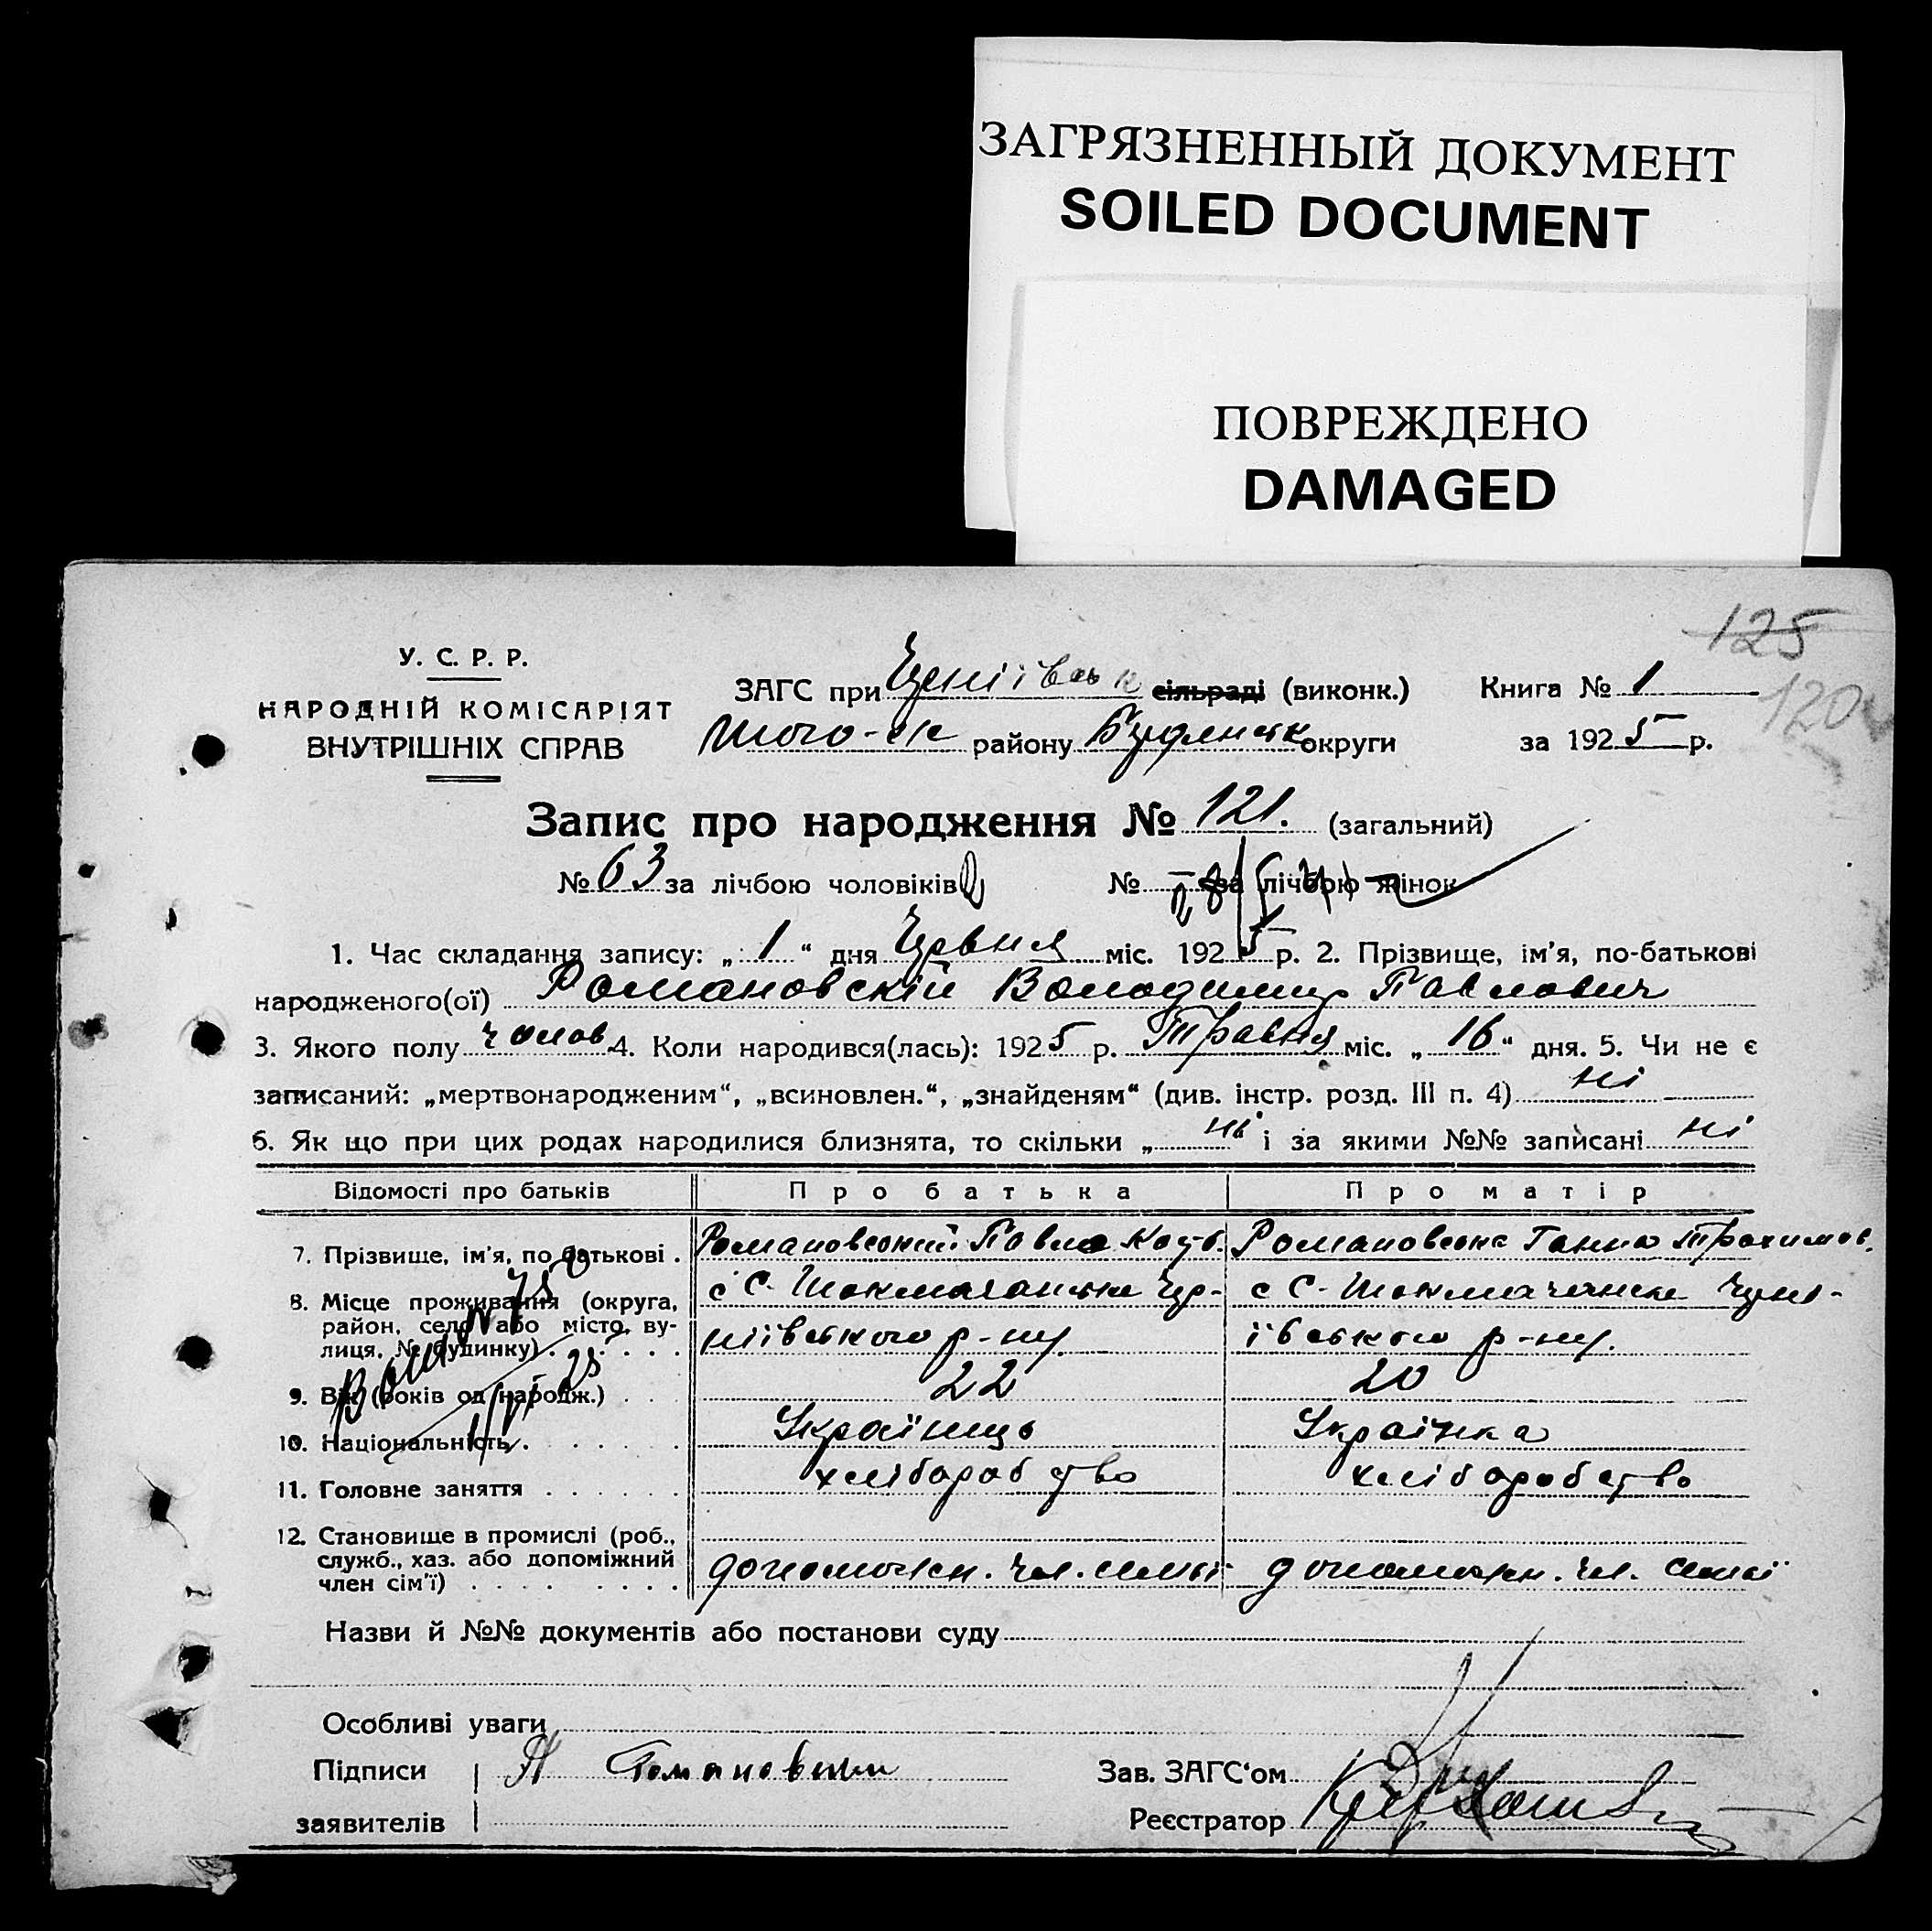 ЗАГРЯЗНЕННЫЙ ДОКУМЕНТ
SOILED DOCUMENT
ПОВРЕЖДЕНО
DAMAGED
125
120
У. С. Р. Р.
НАРОДНІЙ КОМІСАРІЯТ
ВНУТРІШНІХ СПРАВ
ЗАГС при сільраді (виконк.)
Книга № 1
району округи
за 1925 р.
Запис про народження № 121. (загальний)
№ 63 за лічбою чоловіків № за лічбою жінок
1. Час складання запису: „ 1 “ дня Червня міс. 1925 р. 2. Прізвище, ім'я, по-батькові
народженого(ої) Романовскій Володимир Павлович
3. Якого полу чолов. 4. Коли народився(лась): 1925 р. Травня міс. „ 16 “ дня. 5. Чи не є
записаний: „мертвонародженим“, „всиновлен.“, „знайденям“ (див. інстр. розд. III п. 4) ні
6. Як що при цих родах народилися близнята, то скільки „ ні і за якими №№ записані ні
Відомості про батьків Про батька Про матір
7. Прізвище, ім'я, по батькові . Романовський Павло Романовська Ганна Трохимов.
8. Місце проживання (округа,
район, село або місто, ву-
лиця, № будинку) . . . . . .
с С. с С.
ніївського р-ну. ївського р-ну.
9. Вік (років од народж.) . . . 22 20
10. Національність . . . . . . Українець Українка
11. Головне заняття . . . . . . хліборобство хліборобство
12. Становище в промислі (роб.,
служб., хаз. або допоміжний
член сім'ї) . . . . . . . . допоможн. чл. семьі допоможн. чл. семьї
Назви й №№ документів або постанови суду
Особливі уваги
Підписи
заявителів
П Романовский
Зав. ЗАГС'ом
Реєстратор